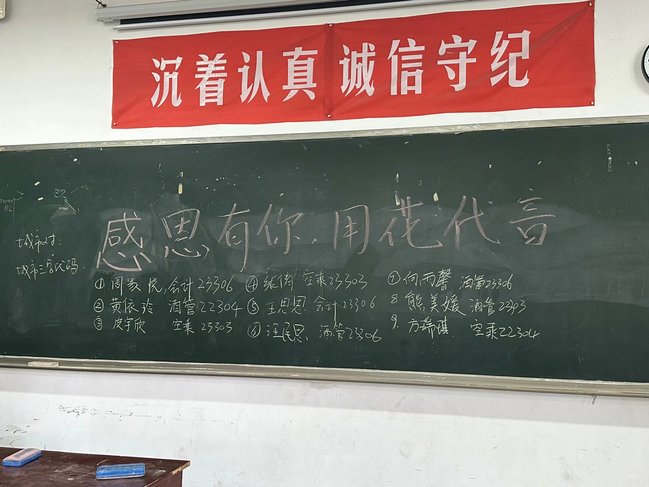 沉着认真 诚信守纪
感恩有你,用花代言
城市对:
城市三字代码:
① 周 悦,会计23306 ④ 空乘23303 ⑦ 何雨馨 酒管23306
② 黄依玲 酒管22304 ⑤ 王思思 会计23306 8 熊美媛 酒管2303
③ 皮宇欣 空乘23303 ⑥ 汪民思 酒管23306 9. 方 琪 空乘22304